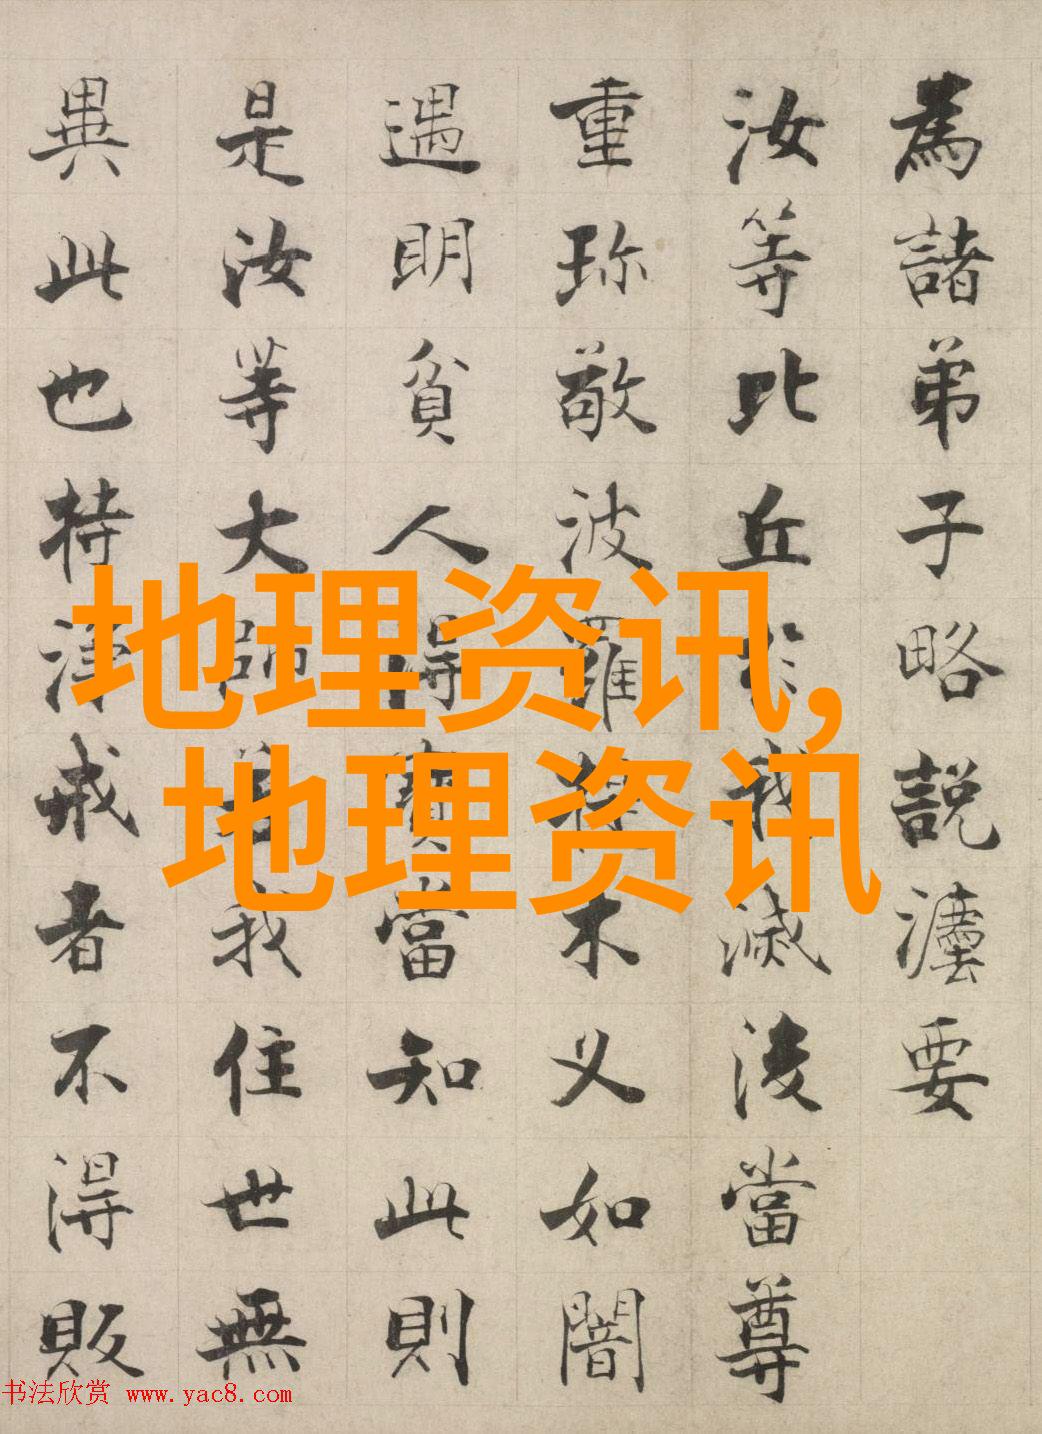 為諸弟子略說灋要
汝等比丘於我滅後當尊
重珎敬波羅提木义如闇
遇明貧人得寶當知此則
是汝等大師若我住世無
異此也持淨戒者不得販
地理资讯,
地理资讯
书法欣赏 www.yac8.com